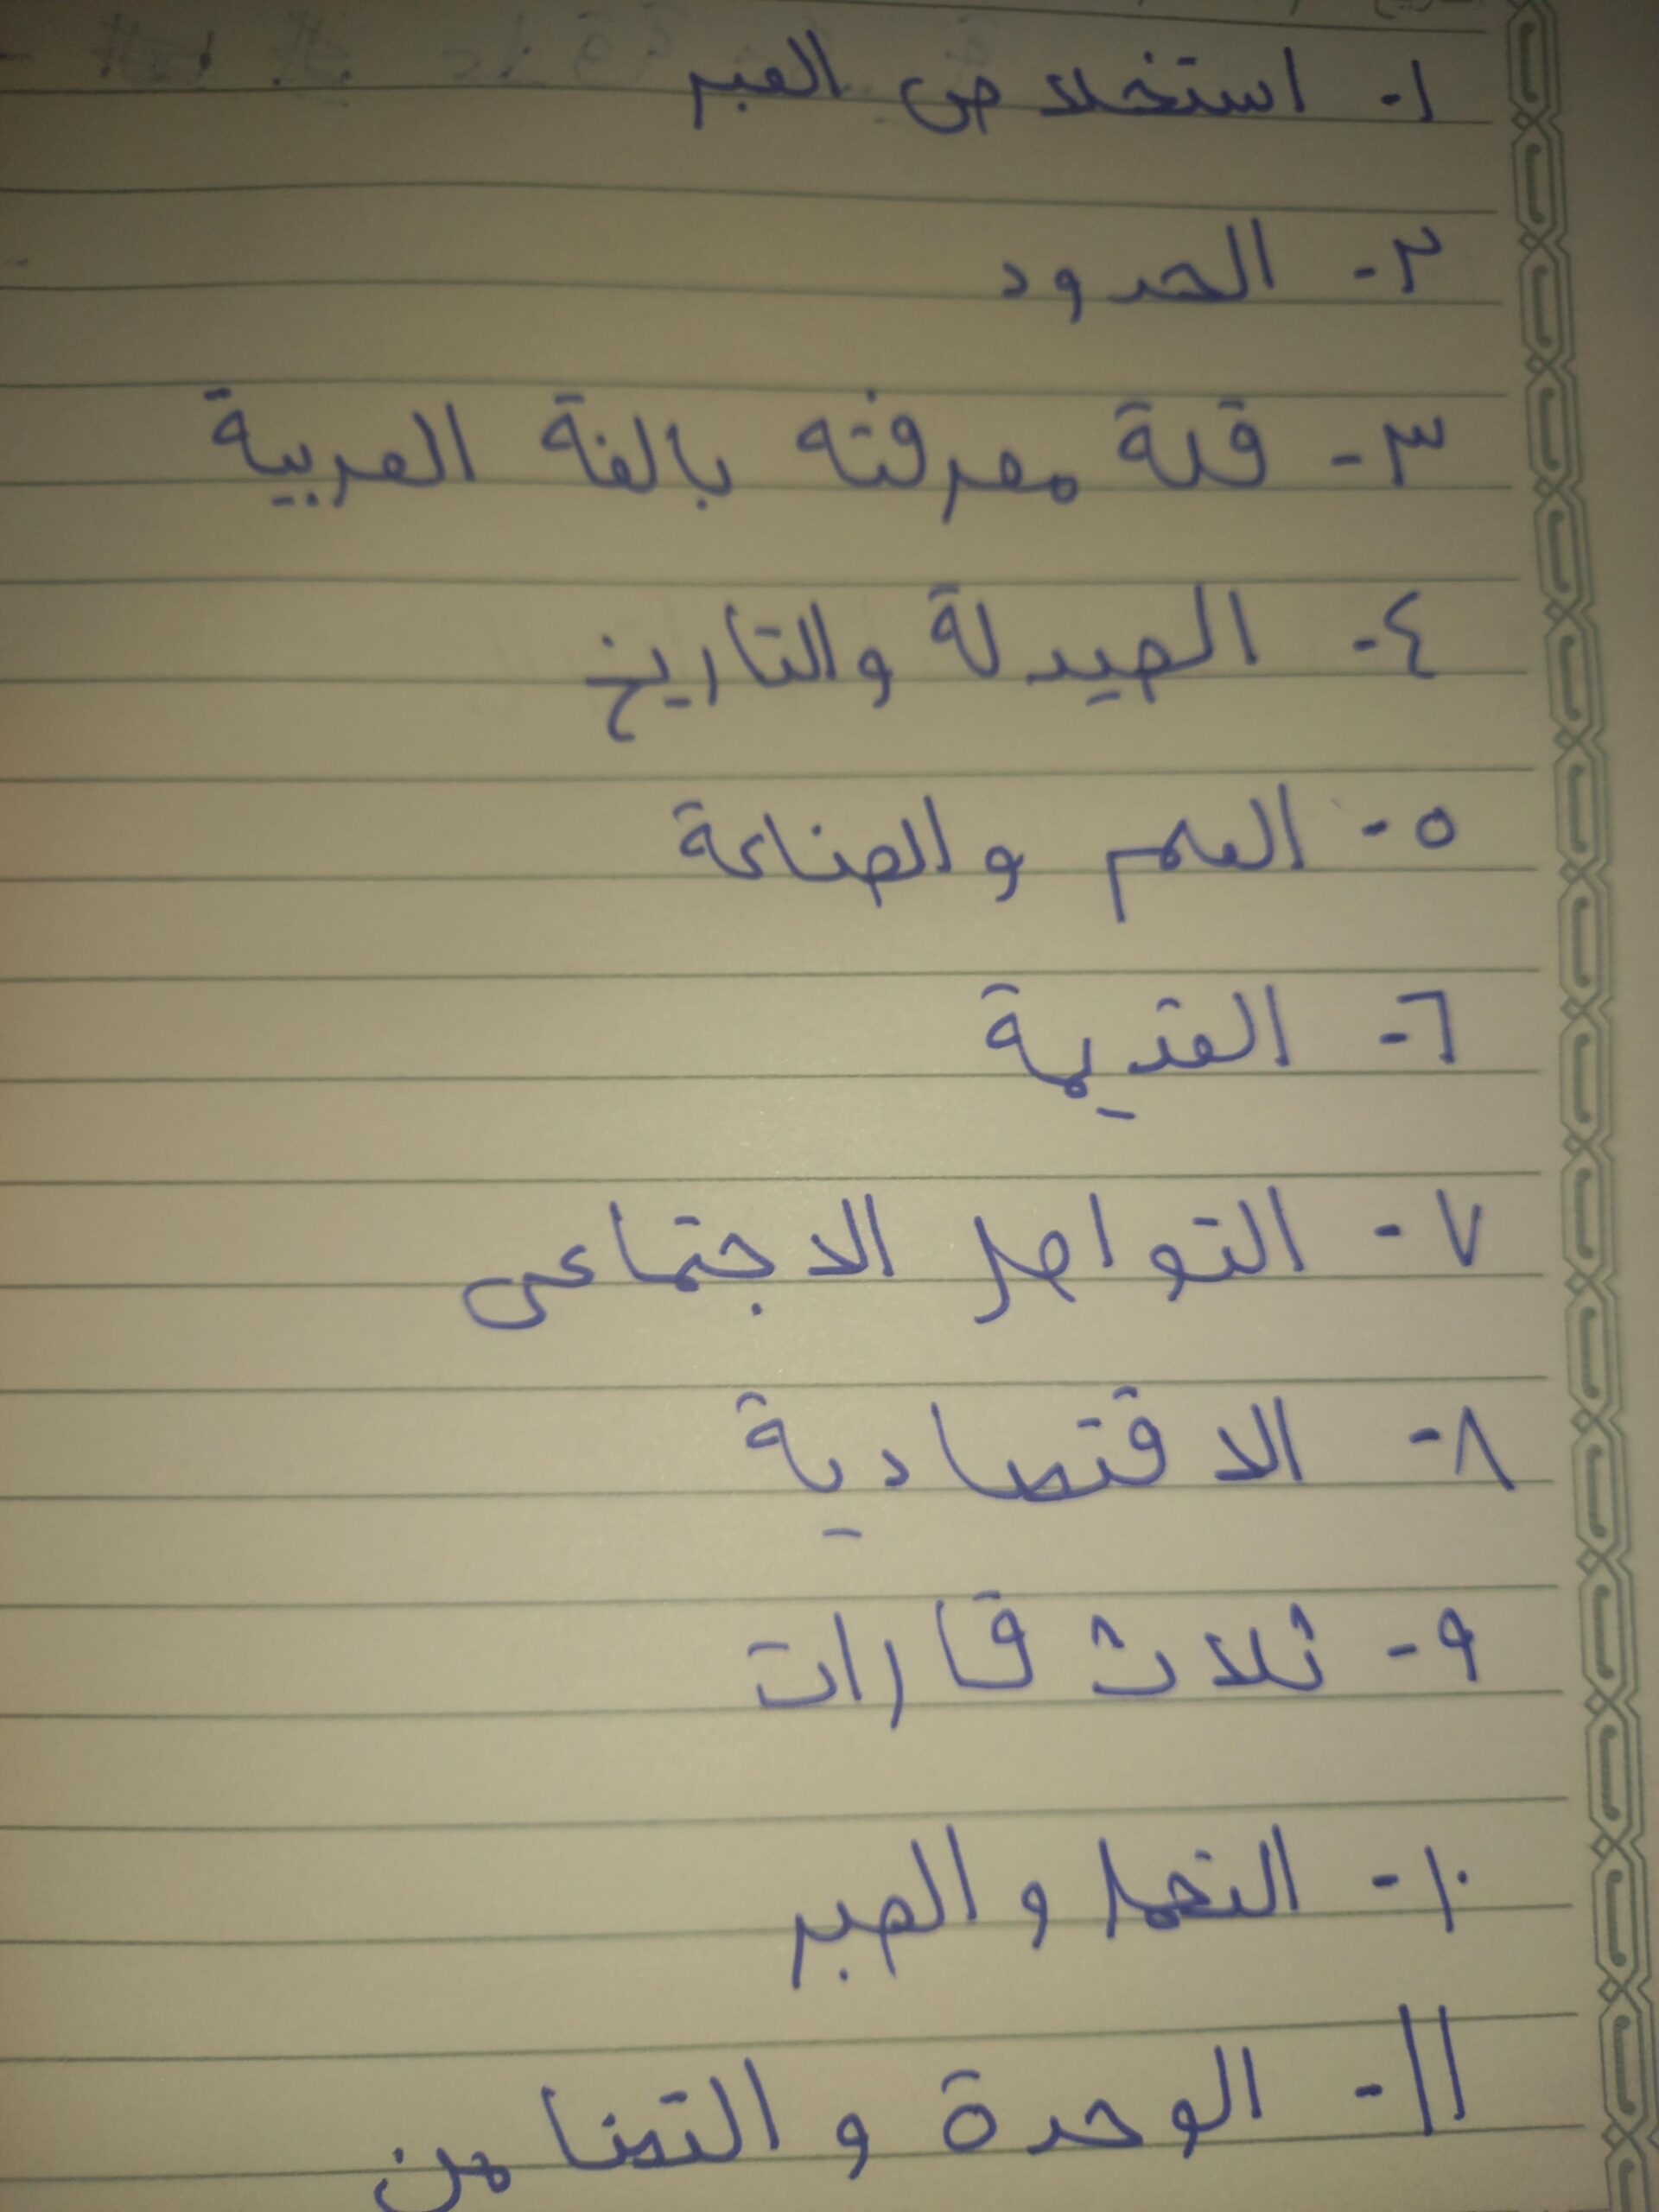 ١- استخلاص العبر
٢- الحدود
٣- قلة معرفته بالغة العربية
٤- الصيدلة والتاريخ
٥- العلم والصناعة
٦- القديمة
٧- التواصل الاجتماعى
٨- الاقتصادية
٩- ثلاث قارات
١٠- التحمل والصبر
١١- الوحدة والتضامن